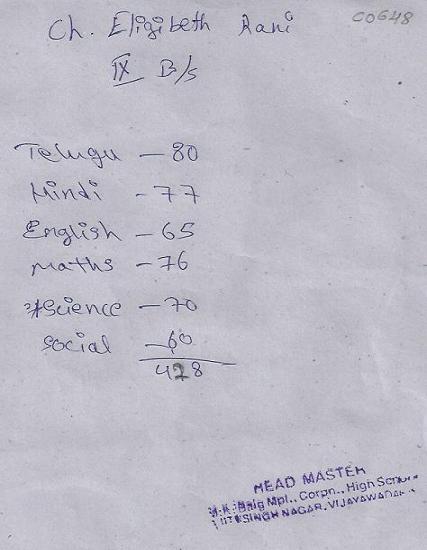 Ch. Eligibeth Rani
C0648
IX B/S
Telugu - 80
Hindi - 77
English - 65
maths - 76
science - 70
social - 60
428
HEAD MASTER
Baig Mpl., Corpn., High
SINGH NAGAR, VIJAYAWADA